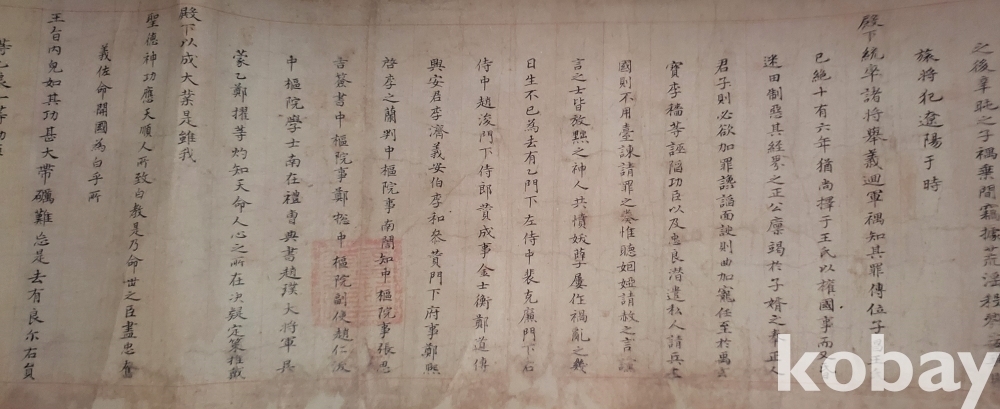 之後辛旽之子禑乗間竊據荒淫
旅將犯遼陽于時
殿下統率諸將舉義迴軍禑知其罪傳位子
已絶十有六年猶尚擇于王氏以權國事而又
迷田制惡其經界之正公廩竭於子婿之奉正人
君子則必欲加罪讒謟面諛則曲加寵任至於禹玄
寶李穡等誣陷功臣以及忠良潜遣私人請兵上
國則不用臺諫請罪之章惟聽姻婭請赦之言諫
言之士皆放黜之神人共憤妖孽屢作禍亂之幾
日生不已為去有乙門下左侍中裴克廉門下右
侍中趙浚門下侍郎賛成事金士衡鄭道傳
興安君李濟義安伯李和叅賛門下府事鄭熙
啓李之蘭判中樞院事南誾知中樞院事張思
吉簽書中樞院事鄭摠中樞院副使趙仁沃
中樞院學士南在禮曹典書趙璞大將軍吳
蒙乙鄭擢等灼知天命人心之所在決疑定策推戴
殿下以成大業是雖我
聖德神功應天順人所致白教是乃命世之臣盡忠奮
義佐命開國為白乎所
王旨內皃如其功甚大帶礪難忘是去有良尔右員
kobay